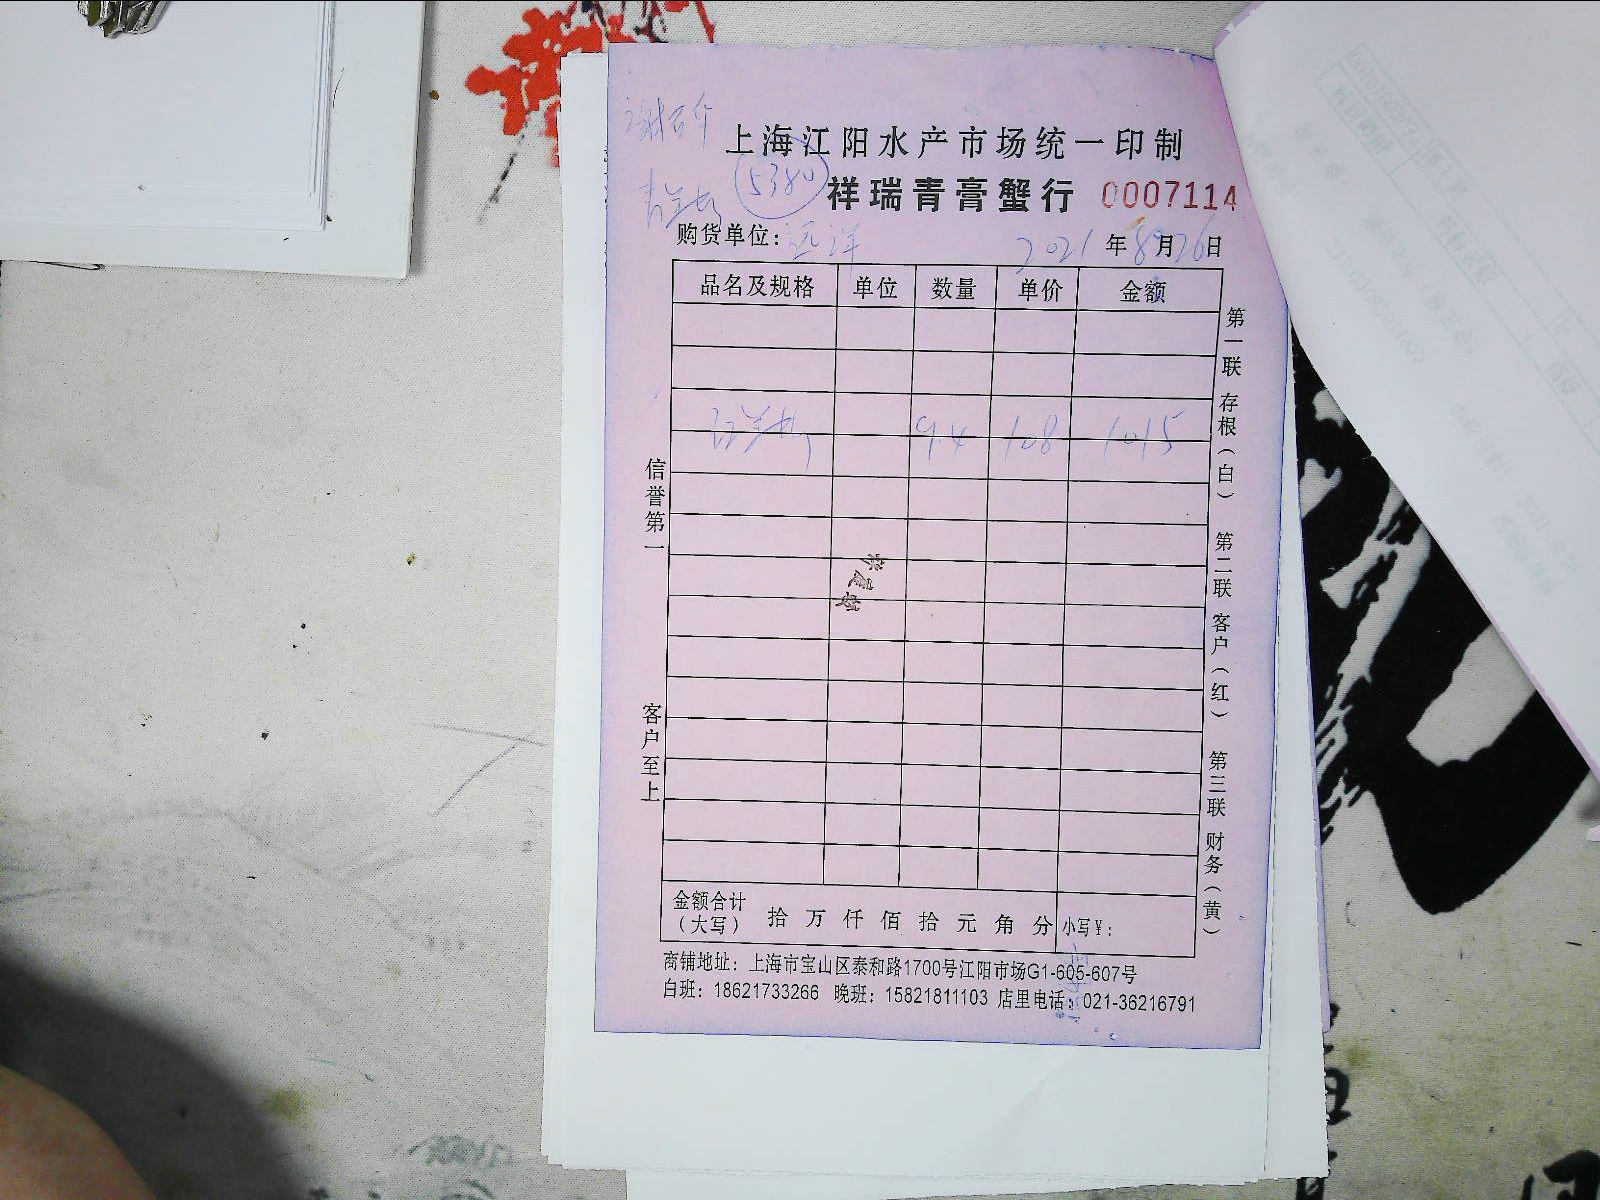 上海江阳水产市场统一印制
5380
祥瑞青膏蟹行 0007114
购货单位：远洋 2021年8月26日
品名及规格 单位 数量 单价 金额
9.4 108 1015
信誉第一
客户至上
第一联 存根（白） 第二联 客户（红） 第三联 财务（黄）
金额合计（大写） 拾 万 仟 佰 拾 元 角 分 小写￥：
商铺地址：上海市宝山区泰和路1700号江阳市场G1-605-607号
白班：18621733266 晚班：15821811103 店里电话：021-36216791